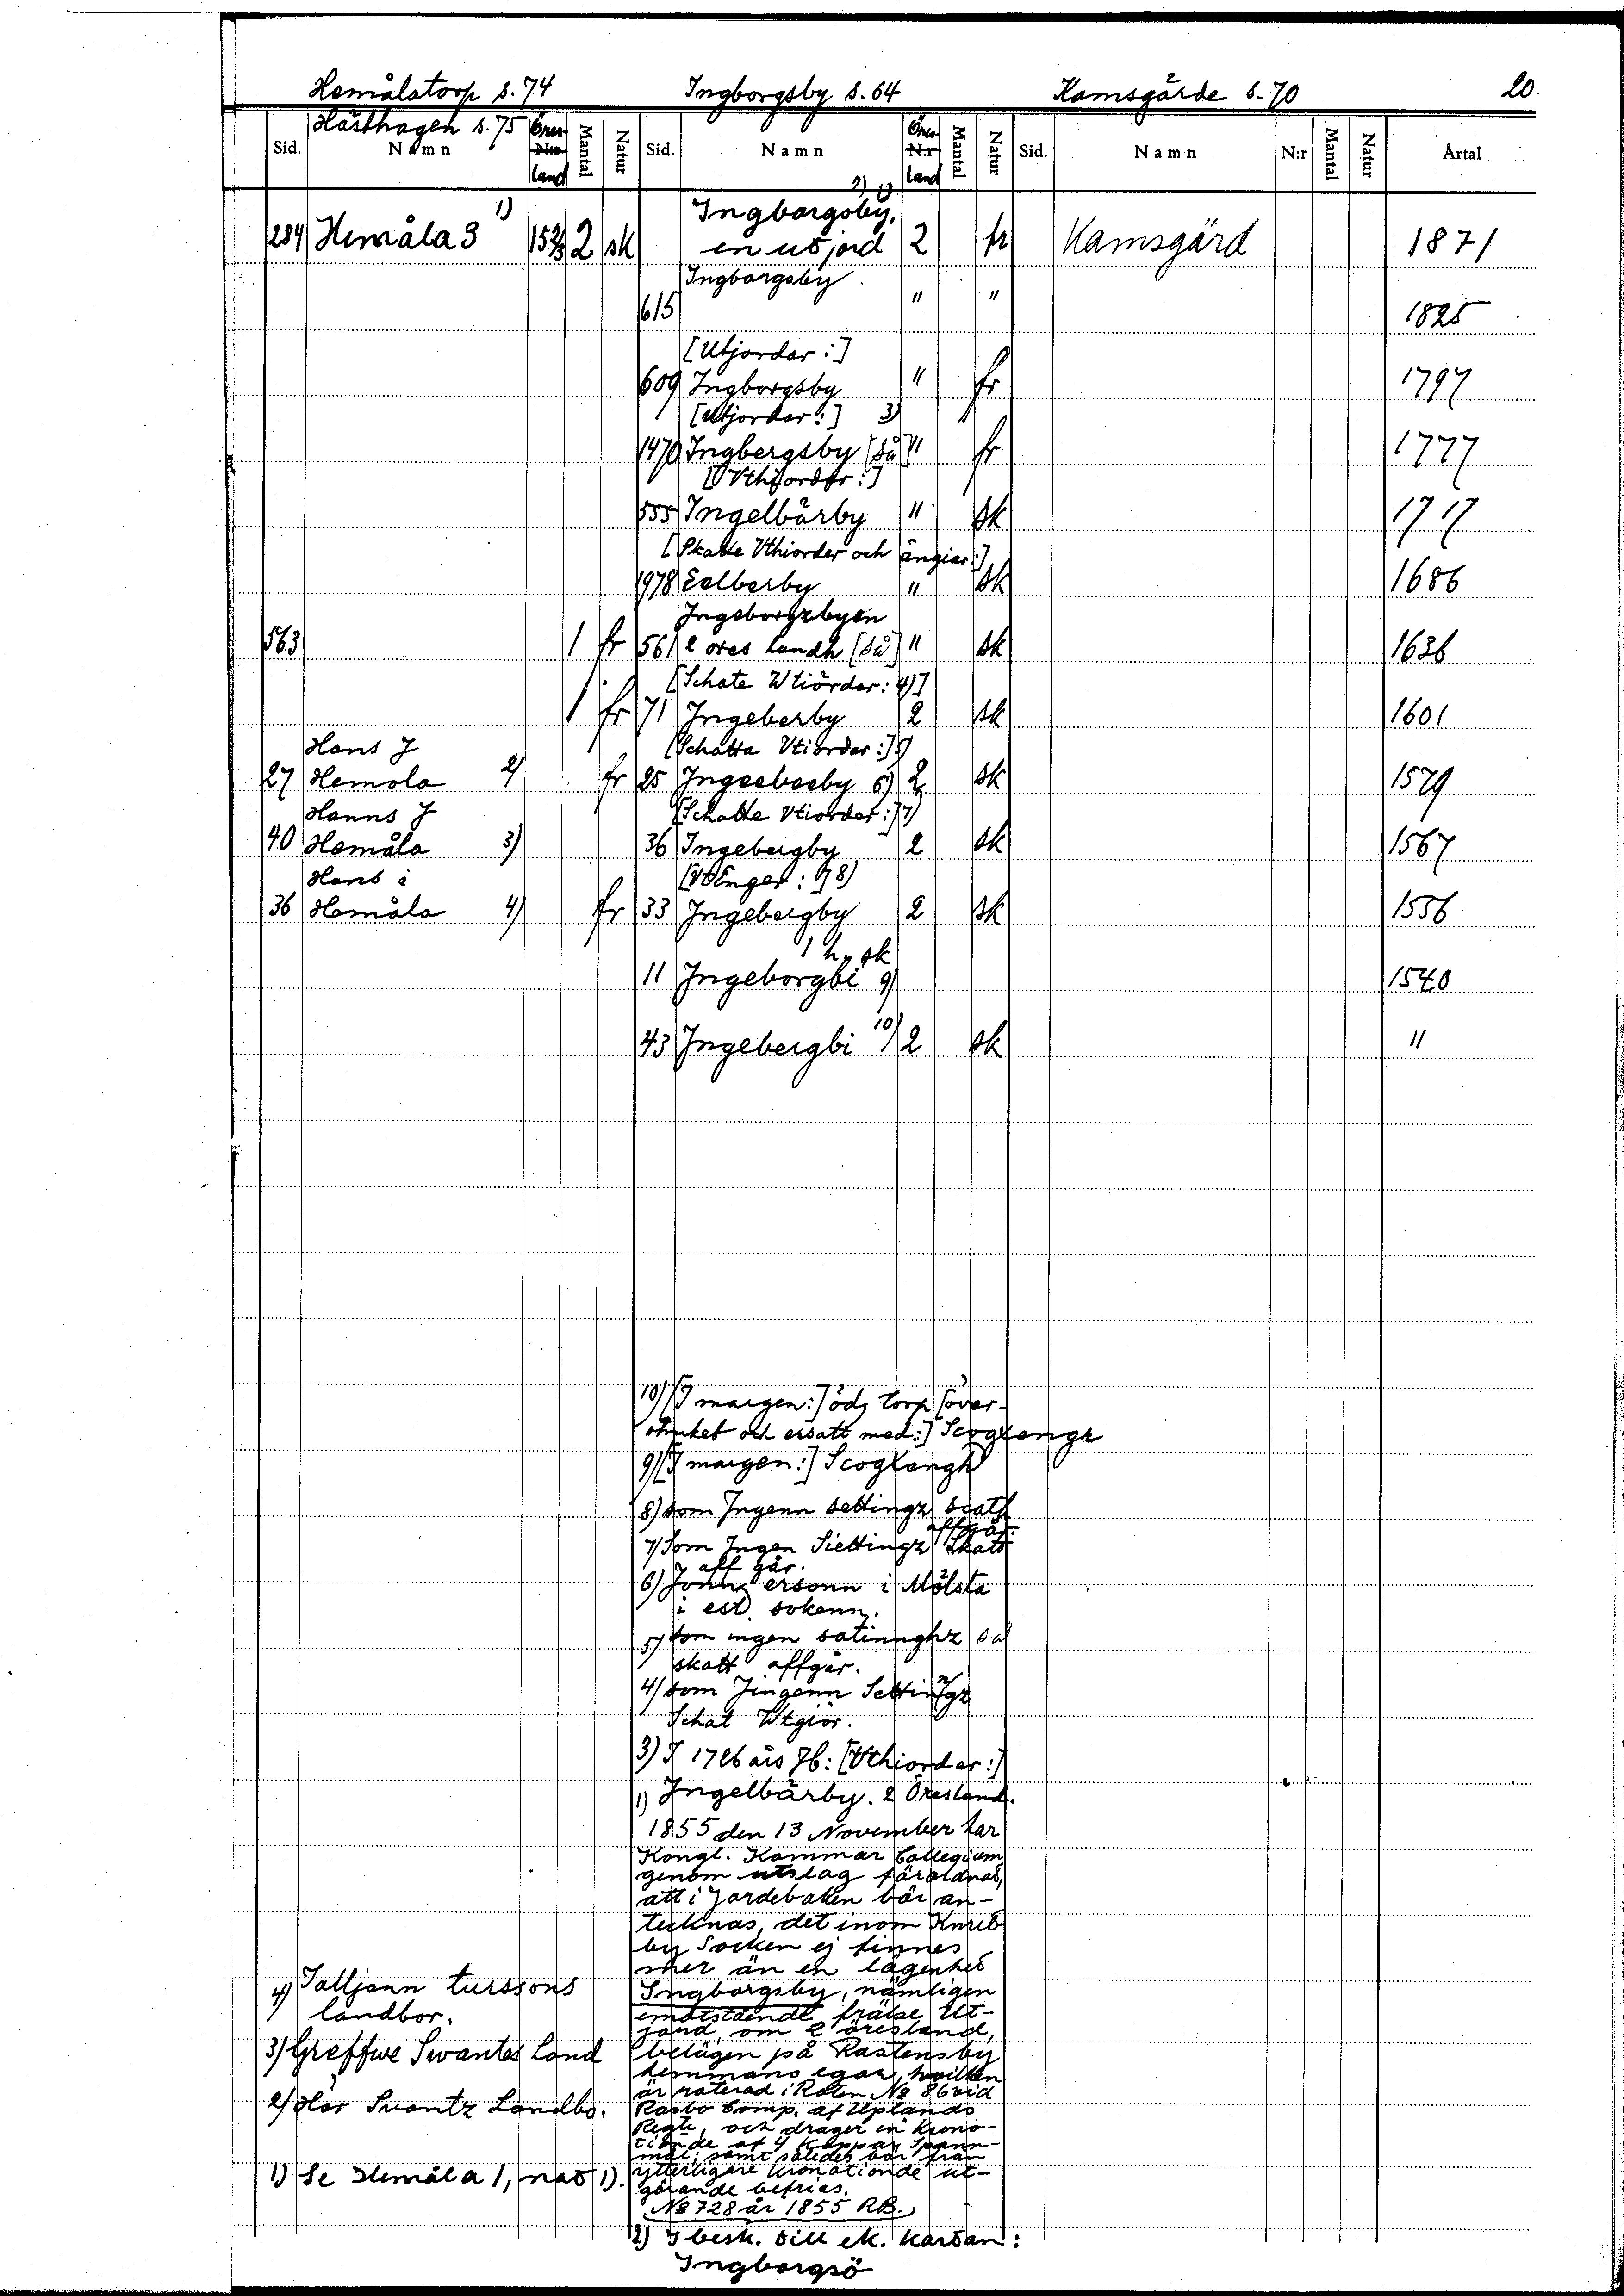 Hemålatorp s. 74 Ingborgsby s. 64 Kamsgärde s. 70 20
Hästhagen s. 75
Sid. Namn Öres N:r land Mantal Natur Sid. Namn Öres N:r land Mantal Natur Sid. Namn N:r Mantal Natur Årtal
2) 1)
Ingborgsby,
284 Hemåla 3 1) 15 2/3 2 sk en utjord 2 fr Kamsgärd 1871
Ingborgsby
615 " " 1825
[Utjordar:]
609 Ingborgsby " fr 1797
[Utjordar:] 3)
1470 Ingbergsby [så] " fr 1777
[Vthjordar:]
555 Ingelbärby " sk 1717
[Skatte Vthiorder och ängiar:]
1978 Eelberby " sk 1686
Ingeborgzbyen
563 1 fr 561 2 öres landh [så] " sk 1636
[Schate Wtiörder: 4)]
1 fr 71 Ingeberby 2 sk 1601
Hans J [Schatta Vtiordar:] 5)
27 Hemola 2) fr 25 Ingeebeeby 6) 2 sk 1579
Hanns J [Schatte Vtiorder:] 7)
40 Hemåla 3) 36 Ingebergby 2 sk 1567
Hans i [Vtenger:] 8)
36 Hemåla 4) fr 33 Ingebergby 2 sk 1556
1 h. sk
11 Ingeborgbi 9) 1540
43 Ingebergbi 10) 2 sk "
10) [I margen:] öds torp [över-
struket och ersatt med:] Scoglengr
9) [I margen:] Scoglengh
8) som Ingenn settingz scath
affgår.
7) Som Ingen Siettingz Skatt
aff går.
6) Jönns ersonn i Mölsta
i est. sokenn.
5) som ingen satinnghz sa
skatt affgår.
4) som Jingenn Settingz
Schat Wtgiör.
3) I 1726 års Jb: [Vthiordar:]
1) Ingelbärby. 2 Öresland.
1855 den 13 November har
Kongl. Kammar Collegium
genom utslag förordnat,
att i Jordeboken bör an-
tecknas, det inom Knut-
by Socken ej finnes
mer än en lägenhet
Ingborgsby, nämligen
emotstående frälse Ut-
jord, om 2 öresland,
belägen på Rastensby
hemmans egor, hvilken
är roterad i Roten No 86 vid
Rasbo Comp. af Uplands
Regte, och drager in Krono-
tionde af 4 Kappar Spann-
mål; samt således bör från
ytterligare kronotionde ut-
görande befrias.
No 728 år 1855 RB.
2) I besk. till ek. kartan:
Ingborgsö
4) Tolljann turssons
landbor.
3) Greffwe Swantes Land
2) Her Suantz Landbo.
1) Se Hemåla 1, not 1).